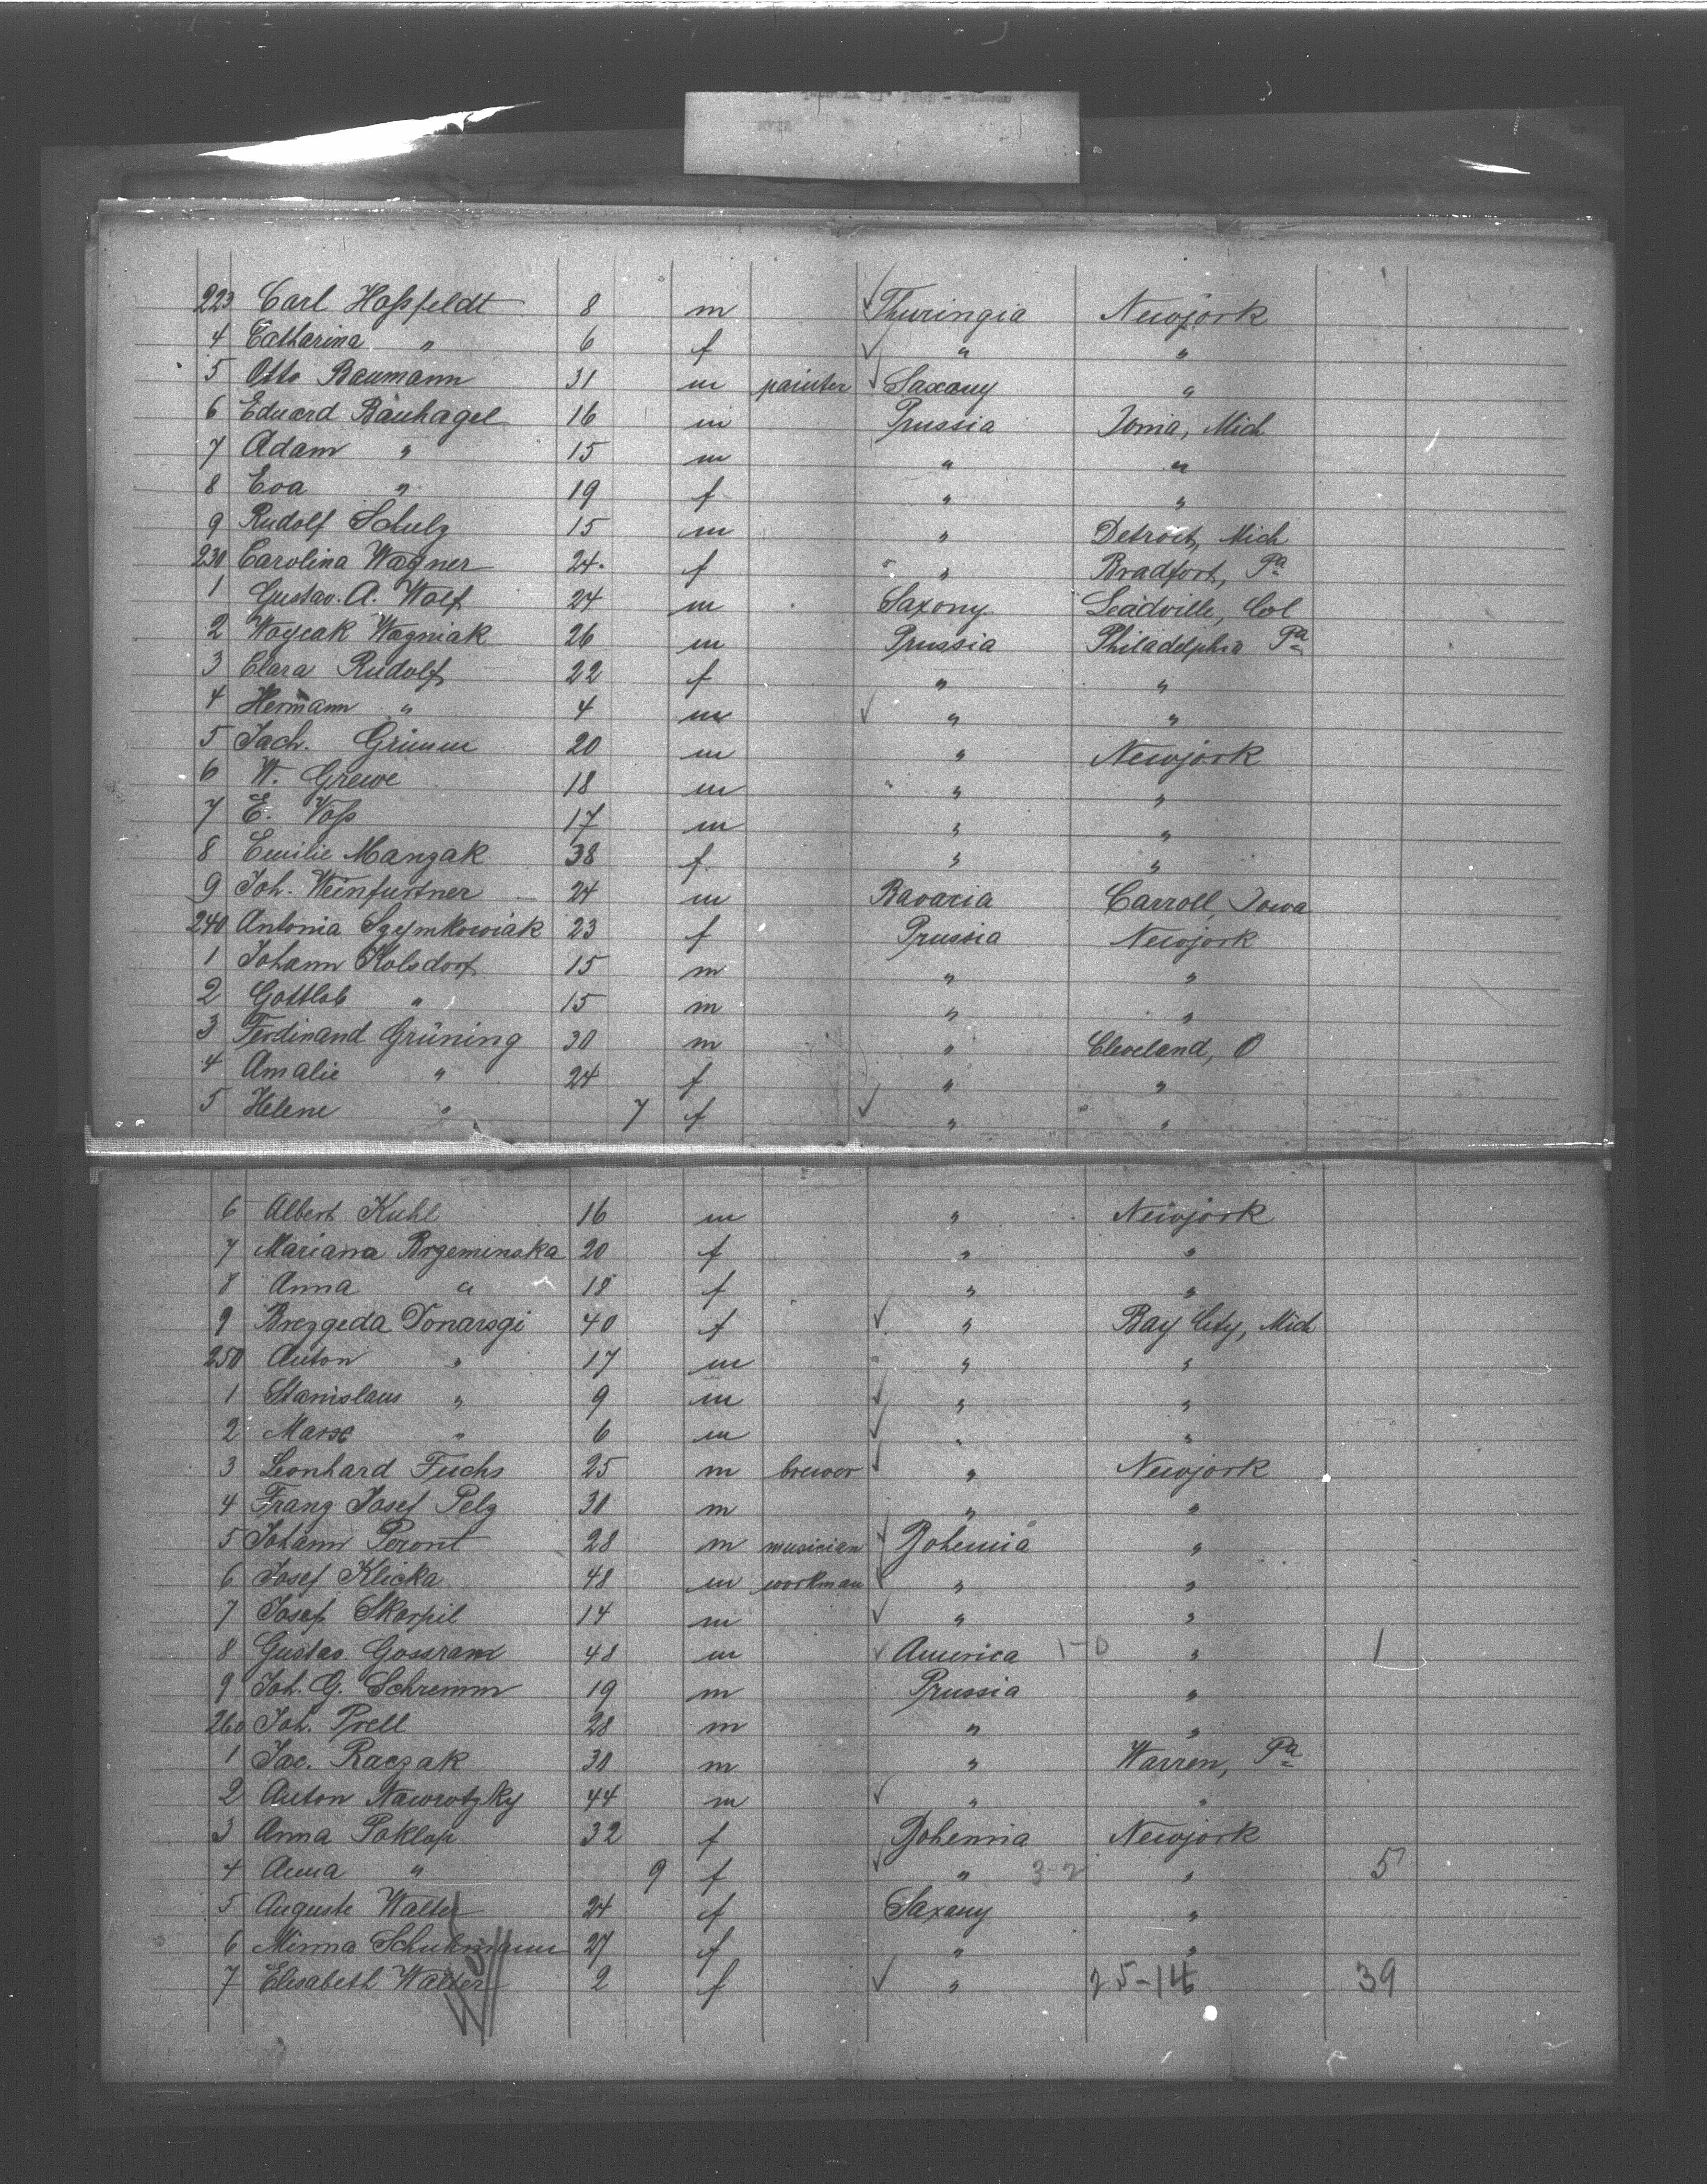 223 Carl Hoßfeldt 8 m Thuringia Newjork
4 Catharina " 6 f " "
5 Otto Baumann 31 m painter Saxony "
6 Eduard Bauhagel 16 m Prussia Ionia, Mich
7 Adam " 15 m " "
8 Eva " 19 f " "
9 Rudolf Schulz 15 m " Detroit, Mich
230 Carolina Wagner 24 f " Bradfort, Pa
1 Gustav A. Wolf 24 m Saxony Leadville, Col
2 Wagniak 26 m Prussia Philadelphia Pa
3 Clara Rudolf 22 f " "
4 Hermann " 4 m " "
5 Jach. Grimm 20 m " Newjork
6 W. Grewe 18 m " "
7 E. Voß 17 m " "
8 Emilie Manzak 38 f " "
9 Joh. Weinfurtner 24 m Bavaria Carroll, Iowa
240 Antonia Szymkowiak 23 f Prussia Newjork
1 Johann Kolsdorf 15 m " "
2 Gottlob " 15 m " "
3 Ferdinand Grüning 30 m " Cleveland, O
4 Amalie " 24 f " "
5 Helene " 7 f " "
6 Albert Kuhl 16 m " Newjork
7 Mariana Brzeminska 20 f " "
8 Anna " 18 f " "
9 Brezgeda Donarsgi 40 f " Bay City, Mich
250 Anton " 17 m " "
1 Stanislaus " 9 m " "
2 " 6 m " "
3 Leonhard Fuchs 25 m brewer " Newjork
4 Franz Josef Pelz 30 m " "
5 Johann Peront 28 m musician Bohemia "
6 Josef Klicka 48 m workman " "
7 Josef Skorpil 14 m " "
8 Gustav Gossram 48 m America 1-0 " 1
9 Joh. G. Schremm 19 m Prussia "
260 Joh. Prell 28 m " "
1 Jac. Raczak 30 m " Warren, Pa
2 Anton Nawrotzky 44 m " "
3 Anna Poklop 32 f Bohemia Newjork
4 Anna " 9 f " 3-2 " 5
5 Auguste Walter 24 f Saxony "
6 Minna Schuhmann 27 f " "
7 Elisabeth Walter 2 f " 25-14 39